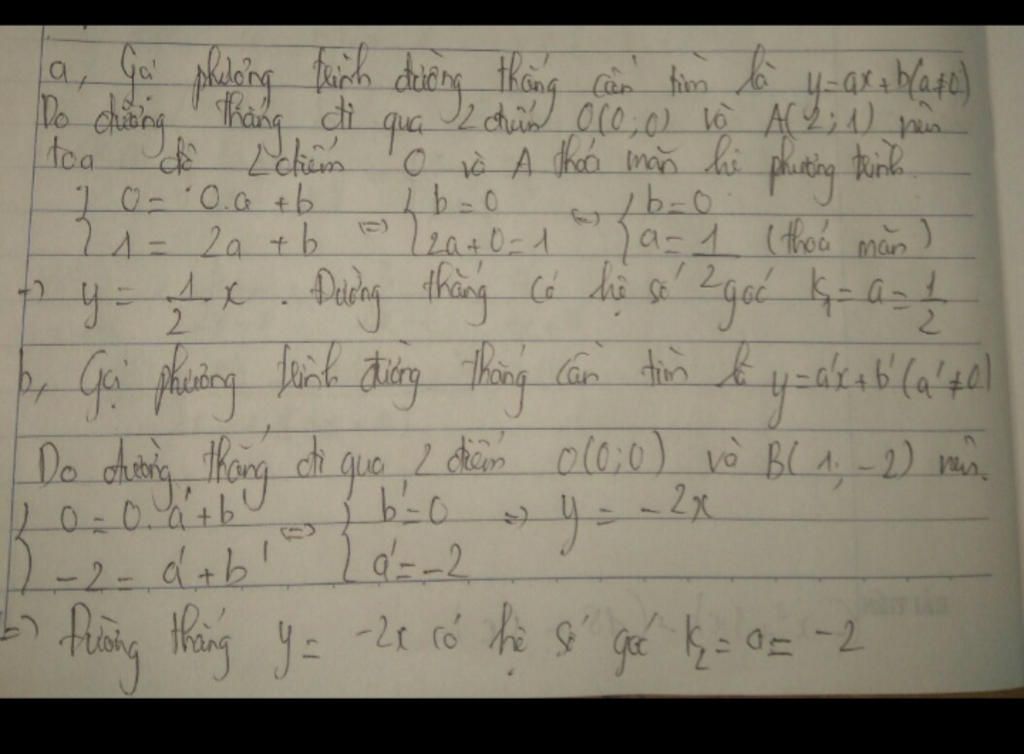 a, Gọi phương trình đường thẳng cần tìm là y=ax+b(a≠0)
Do đường thẳng đi qua 2 điểm O(0;0) và A(2;1) nên
tọa độ 2 điểm O và A thoả mãn hệ phương trình.
{ 0 = 0.a + b <=> { b=0 <=> { b=0
{ 1 = 2a + b { 2a+0=1 { a=1/2 (thoả mãn)
=> y = 1/2 x . Đường thẳng có hệ số góc k₁=a=1/2
b, Gọi phương trình đường thẳng cần tìm là y=a'x+b'(a'≠0)
Do đường thẳng đi qua 2 điểm O(0;0) và B(1;-2) nên.
{ 0=0.a'+b' <=> { b'=0 => y = -2x
{ -2 = a'+b' { a'=-2
=> Đường thẳng y = -2x có hệ số góc k₂=a=-2